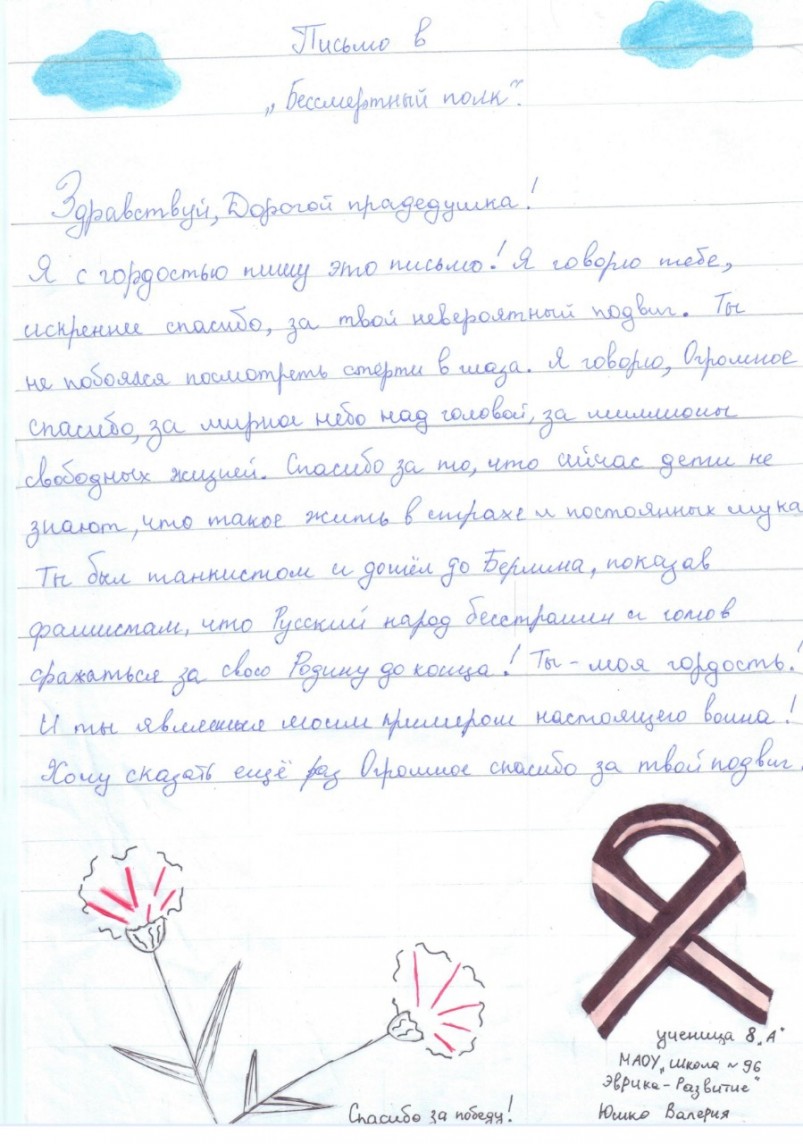 Письмо в
„Бессмертный полк".
Здравствуй, Дорогой прадедушка!
Я с гордостью пишу это письмо! Я говорю тебе,
искреннее спасибо, за твой невероятный подвиг. Ты
не побоялся посмотреть смерти в глаза. Я говорю, Огромное
спасибо, за мирное небо над головой, за миллионы
свободных жизней. Спасибо за то, что сйчас дети не
знают, что такое жить в страхе и постоянных мука
Ты был танкистом и дошёл до Берлина, показав
фашистам, что Русский народ бесстрашен и готов
сражаться за свою Родину до конца! Ты - моя гордость!
И ты являешься моим примером настоящего воина!
Хочу сказать ещё раз Огромное спасибо за твой подвиг.
ученица 8 „А"
МАОУ „Школа ~ 96
Эврика-Развитие"
Юшко Валерия
Спасибо за победу!